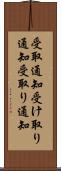 受取通知受け取り
通知受取り通知